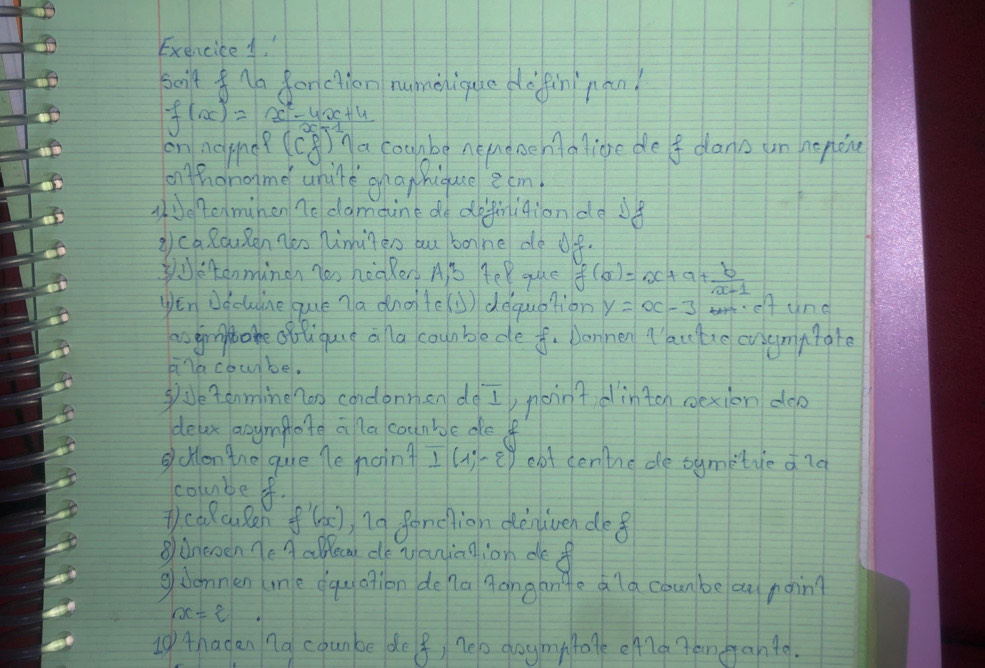 Exercice 1:
Soit f la fonction numérique défini par:
f(x) = x² - 4x + 4
x - 1
on rappel (Cf) la courbe representative de f dans un repére
orthonormé unité graphique 2cm.
1) Determiner le domaine de définition de Df
2) Calculer les limites au borne de Df.
3) Déterminer les réelers A,B tel que f(x) = x + a + b
x-1
4) En Déduire que la droite (D) déquation y = x - 3 et une
asymptote oblique à la courbe de f. Donner l'autre asymptote
à la courbe.
5) Determine les cordonner de I, point d'inter sexion des
deux asymptote à la courbe de f
6) Montre que le point I (1; -2) est centre de symétrie à la
courbe f.
7) calculer f'(x), la fonction dériver de f
8) Dresser le tableau de variation de f
9) Donner une équation de la tangante à la courbe au point
x = 2.
10) tracer la courbe de f, les asymptote et la tangante.